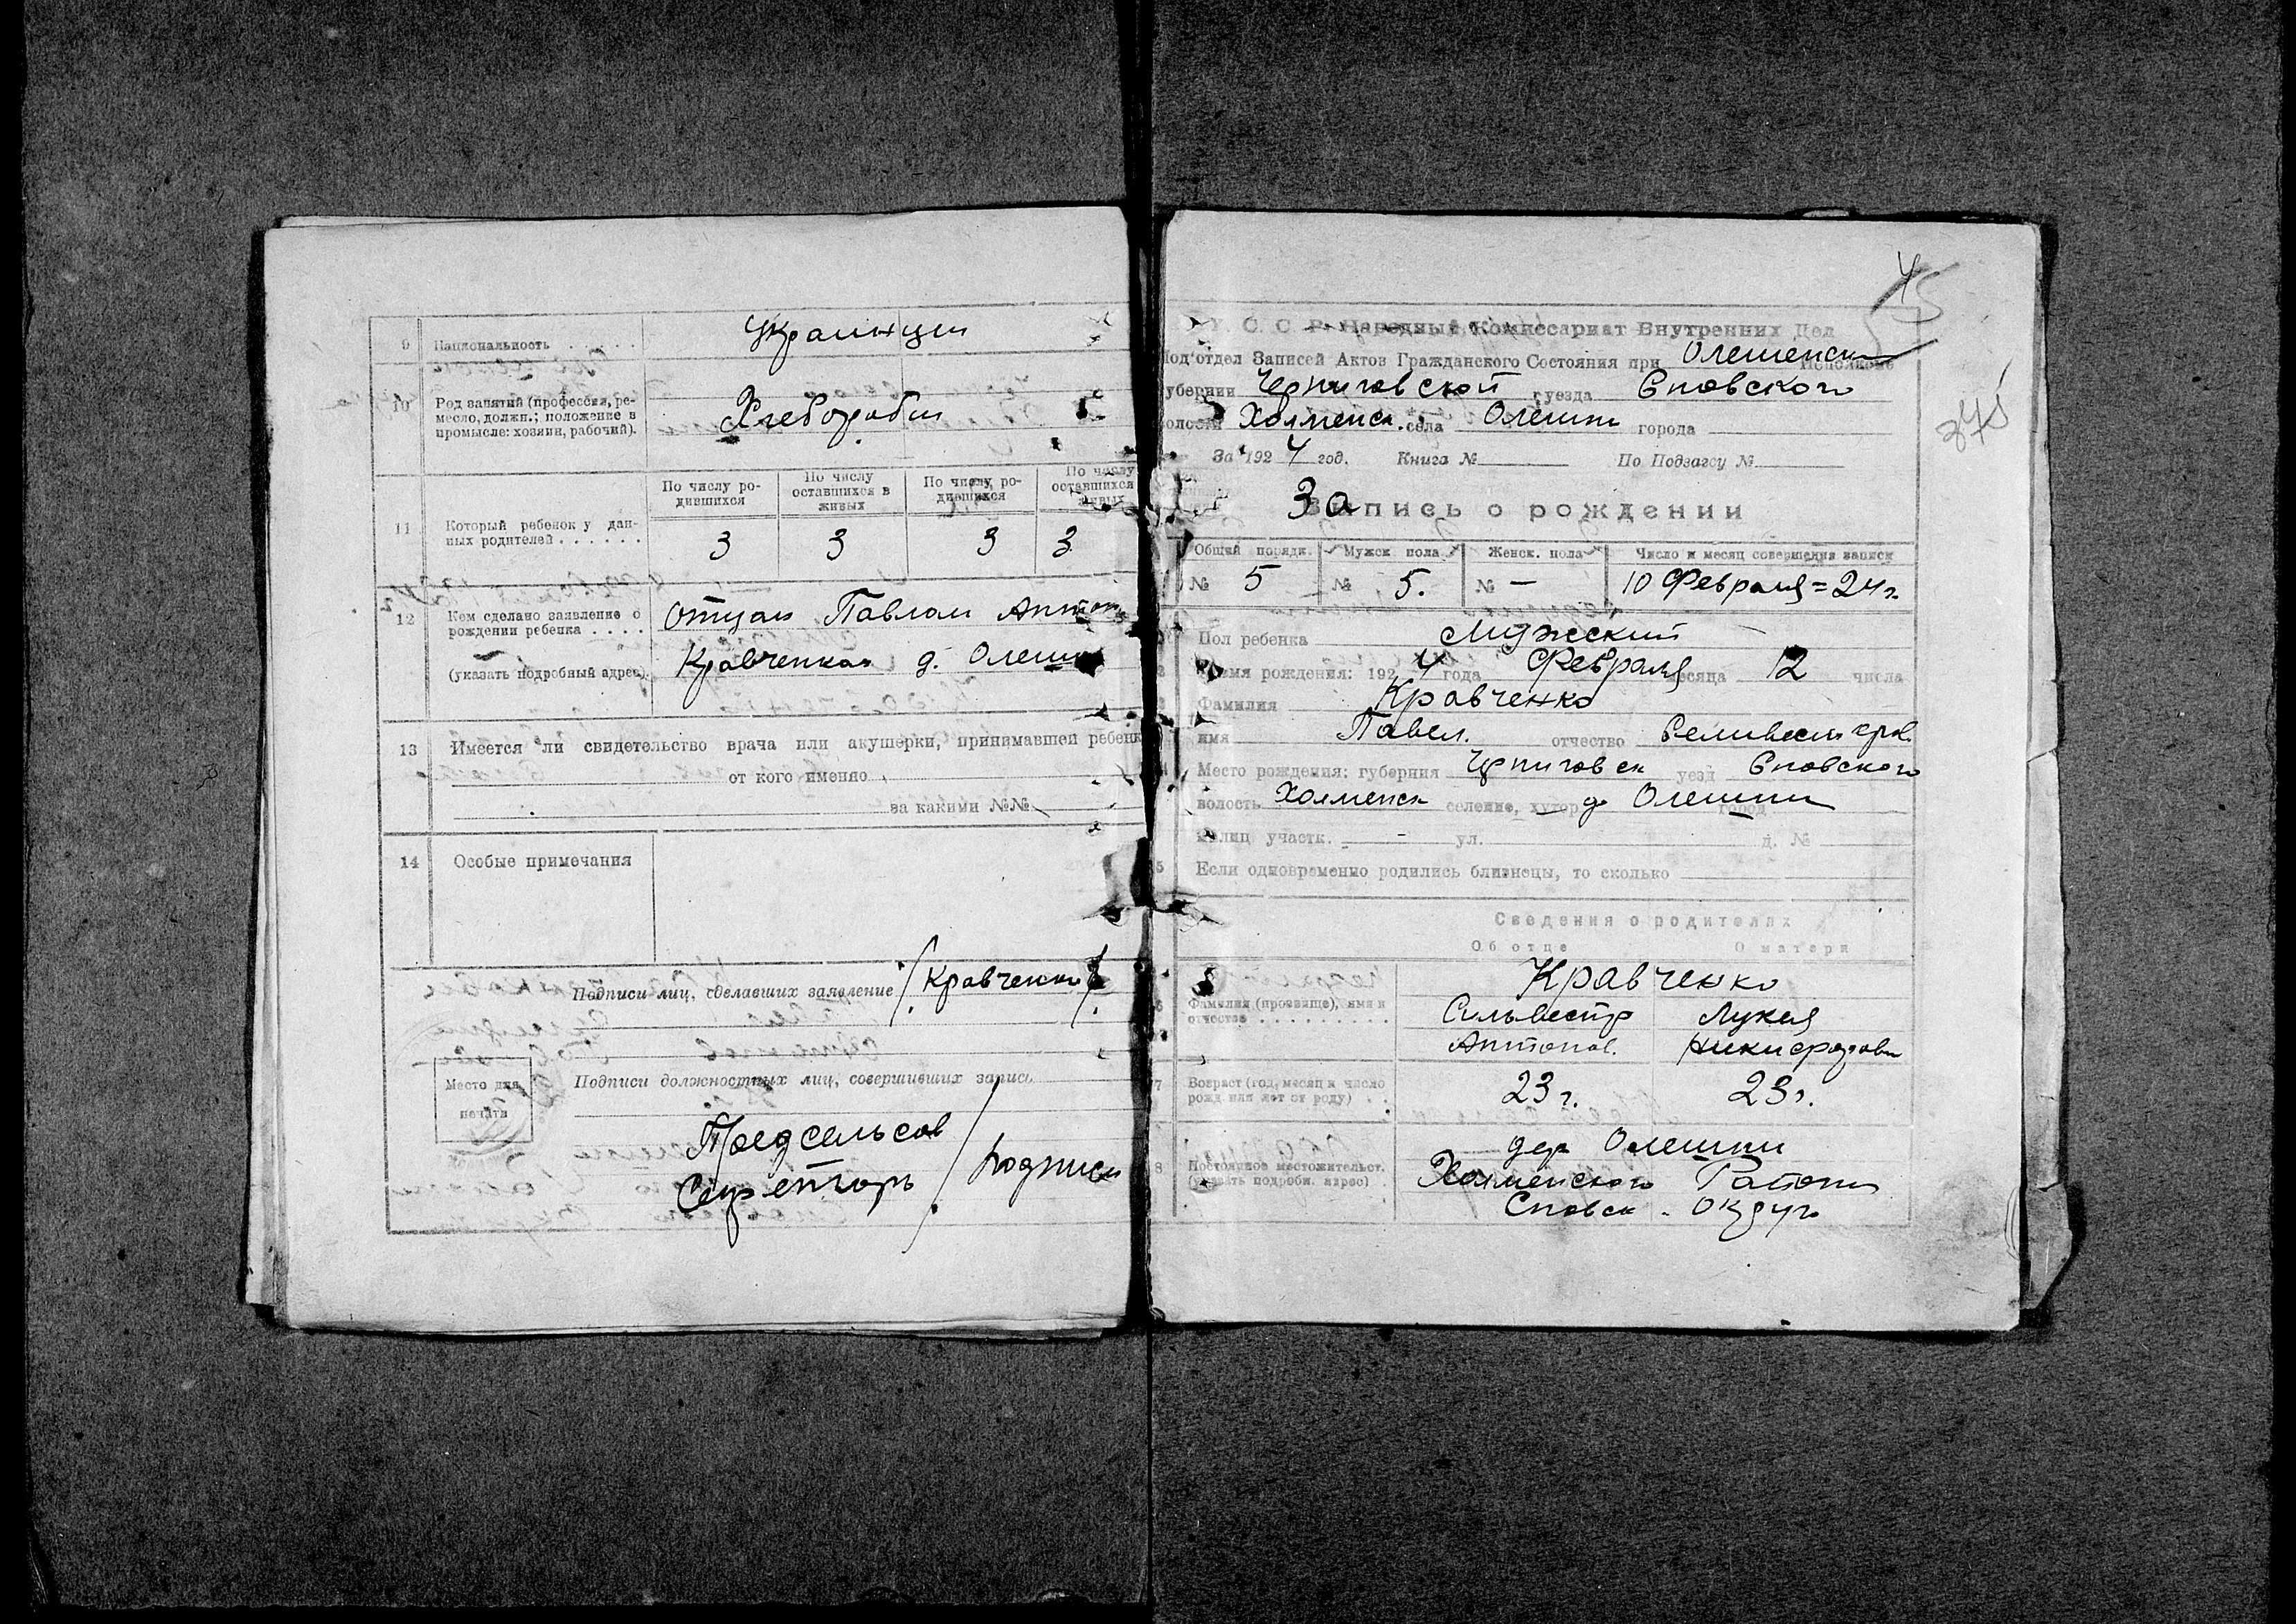 9 Национальность . . . . . . Украинцы
10 Род занятий (профессия, ре-
месло, должн.; положение в
промысле: хозяин, рабочий).
Хлеборобы
По числу ро-
дившихся
По числу
оставшихся в
живых
По числу ро-
дившихся
По числу
оставшихся
живых
11 Который ребенок у дан-
ных родителей . . . . . .
3 3 3 3
12 Кем сделано заявление о
рождении ребенка . . . .
(указать подробный адрес)
Отцом Павлом Антон
Кравченком д. Олешни
13 Имеется ли свидетельство врача или акушерки, принимавшей ребенк
от кого именно
за какими №№
14 Особые примечания
Подписи лиц, сделавших заявление /Кравченко/
Место для
печати
Подписи должностных лиц, совершивших запись
Предсельсов
Секретарь / подписи
4
5
375
У. С. С. Р. Народный Комиссариат Внутренних Дел
Под'отдел Записей Актов Гражданского Состояния при Олешенск Исполкоме
губернии Черниговской уезда Сновского
волости Холменск. села Олешни города
За 1924 год. Книга № По Подзагсу №
3а
Запись о рождении
Общий порядк. Мужск пола Женск. пола Число и месяц совершения записи
№ 5 № 5. № — 10 Февраля = 24 г.
Пол ребенка Мужеский
Время рождения: 1924 года Февраля месяца 12 числа
Фамилия Кравченко
имя Павел. отчество Селивестров.
Место рождения: губерния Черниговск уезд Сновского
волость Холменск селение, хутор д. Олешни город
милиц участк. - ул. д. №
5 Если одновременно родились близнецы, то сколько
Сведения о родителях
Об отце О матери
6 Фамилия (прозвище), имя и
отчество . . . . . . . . .
Кравченко
Сильвестр Лукея
Антонов. Никифоровн
7 Возраст (год, месяц и число
рожд. или лет от роду) . .
23 г. 23 г.
8 Постоянное местожительст.
(указать подробн. адрес) .
дер Олешни
Холменского Района
Сновск. Округа